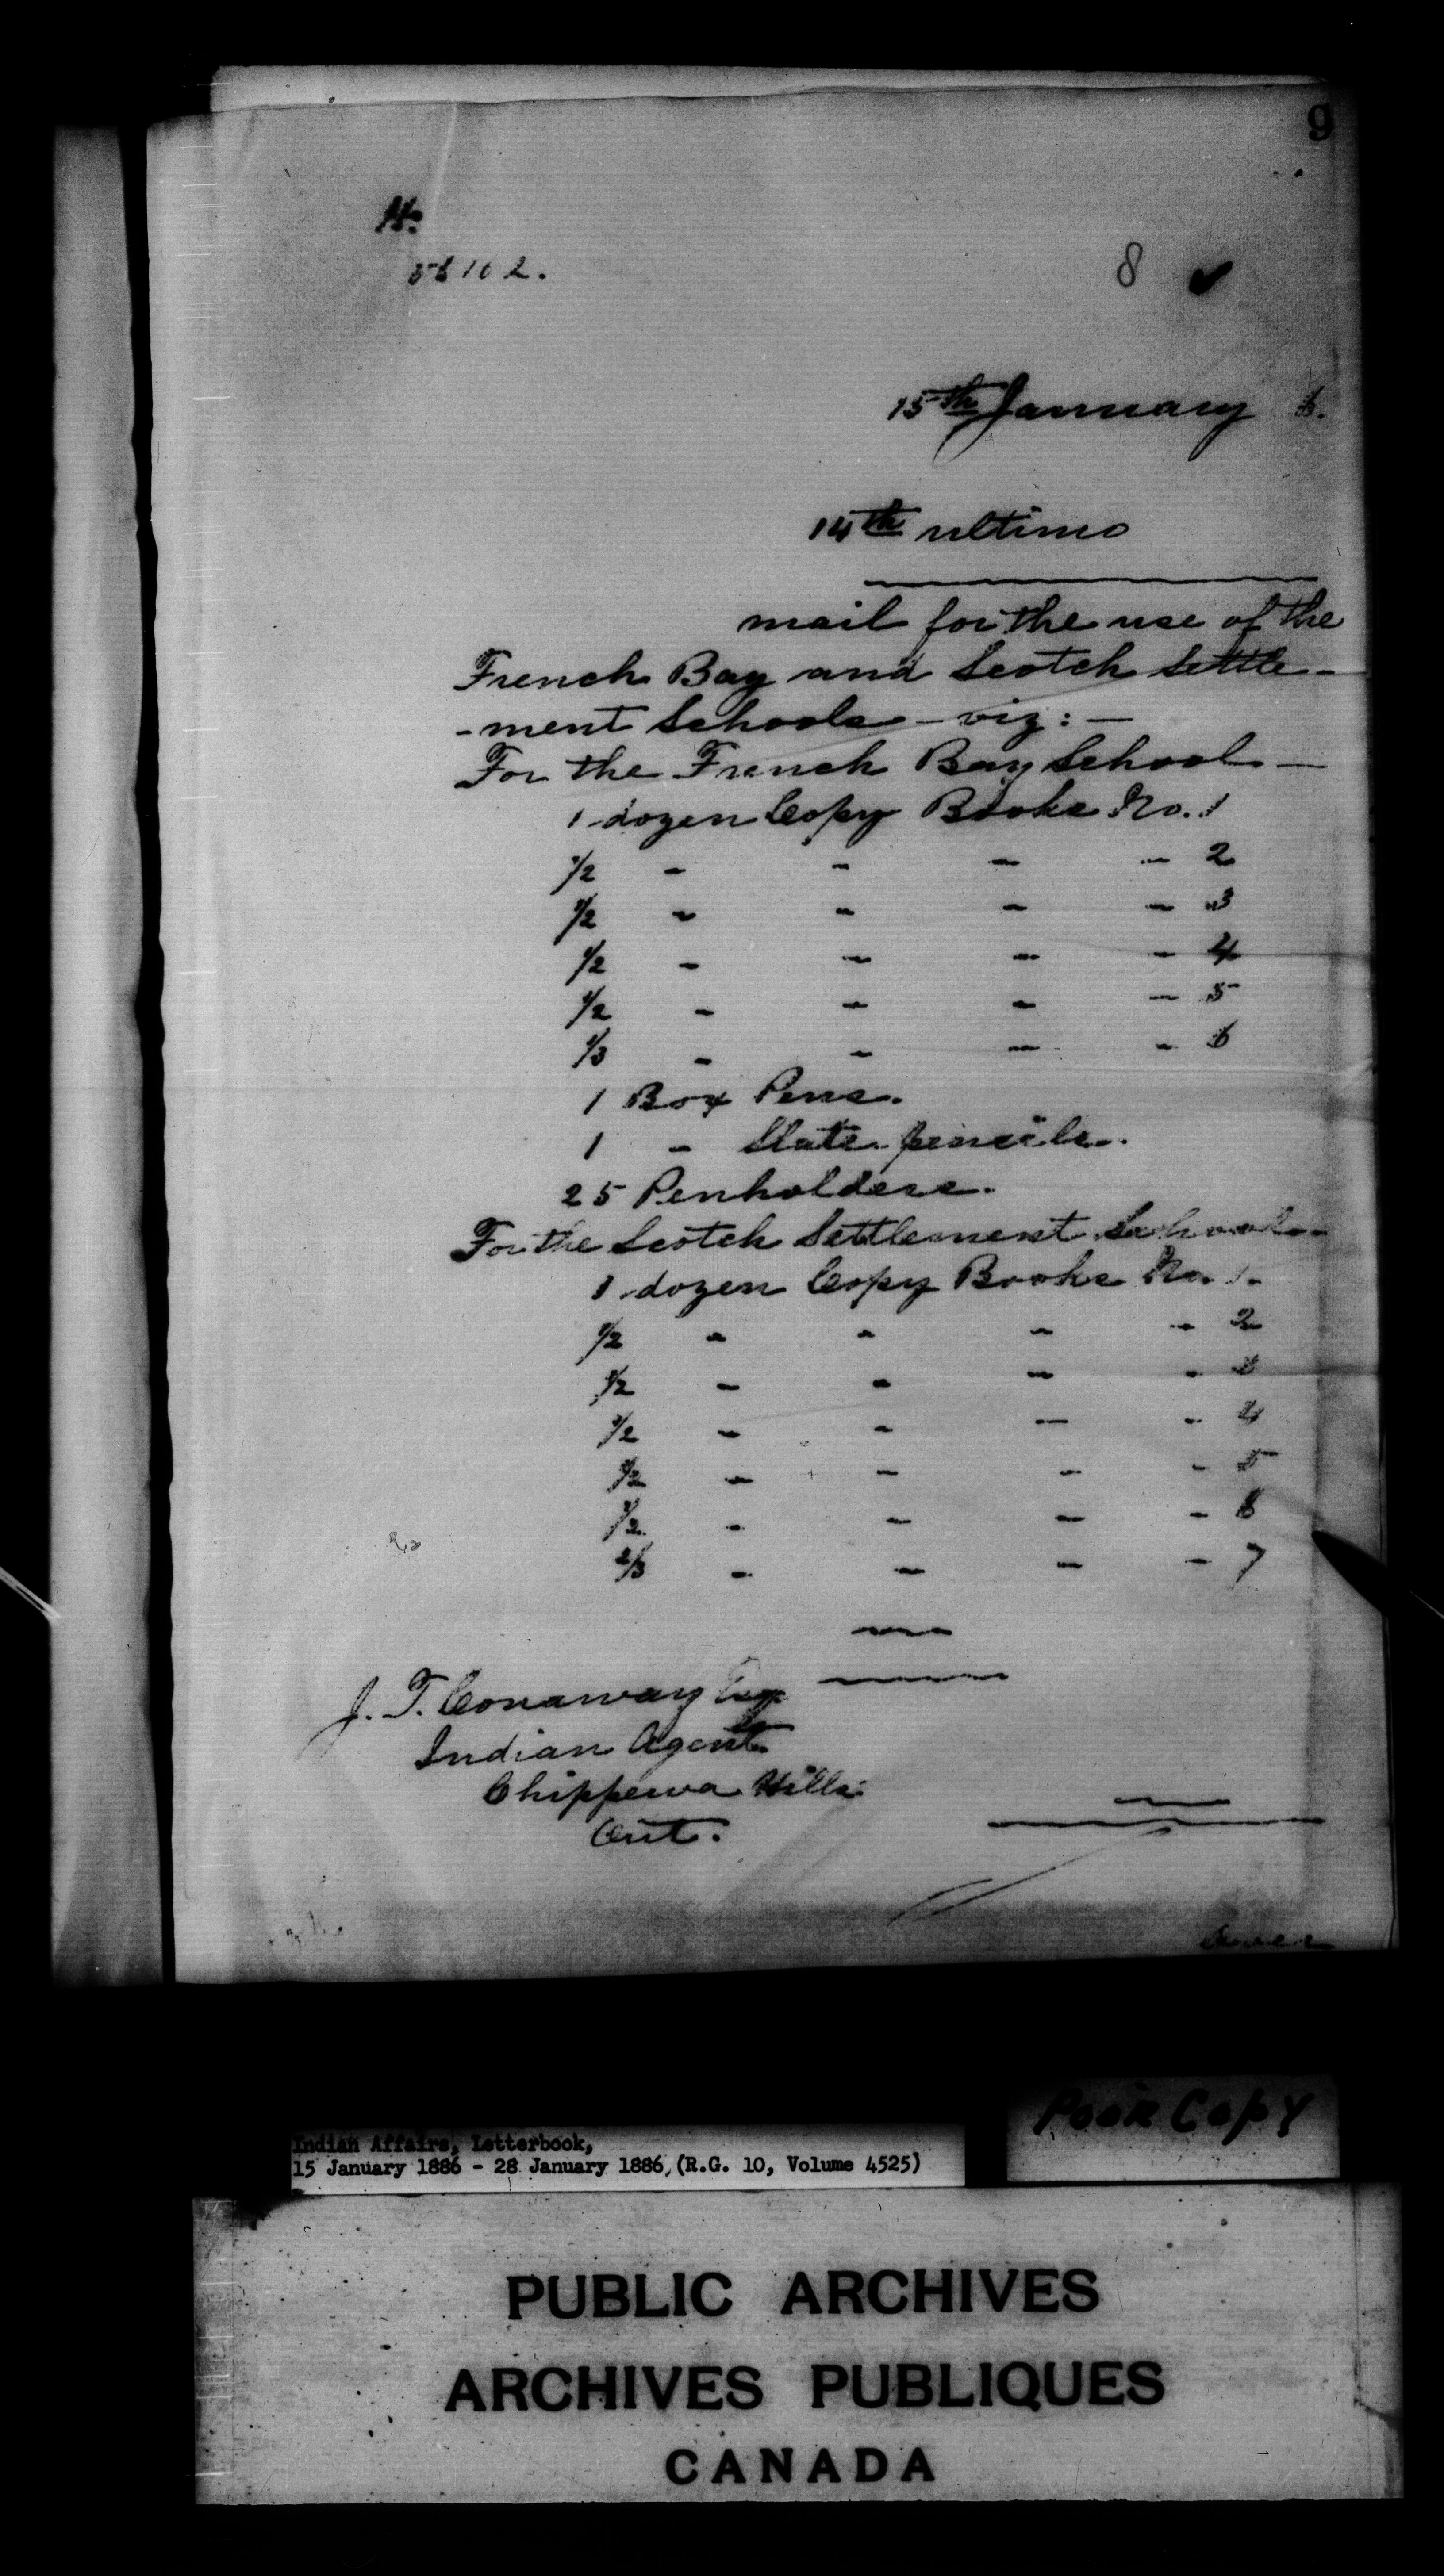 9
No.
58102.
8
15th January 6.
14th ultimo
mail for the use of the
French Bay and Scotch Settle-
-ment Schools - viz: -
For the French Bay School -
1 dozen Copy Books No. 1
1/2 - - - - 2
1/2 - - - - 3
1/2 - - - - 4
1/2 - - - - 5
1/3 - - - - 6
1 Box Pens.
1 - Slate pencils.
25 Penholders.
For the Scotch Settlement School -
1 dozen Copy Books No. 1.
1/2 - - - - 2
1/2 - - - - 3
1/2 - - - - 4
1/2 - - - - 5
1/2 - - - - 6
2/3 - - - - 7
J. T. Conaway Esq
Indian Agent
Chippewa Hill
Ont.
Poor Copy
Indian Affairs, Letterbook,
15 January 1886 - 28 January 1886, (R.G. 10, Volume 4525)
PUBLIC ARCHIVES
ARCHIVES PUBLIQUES
CANADA